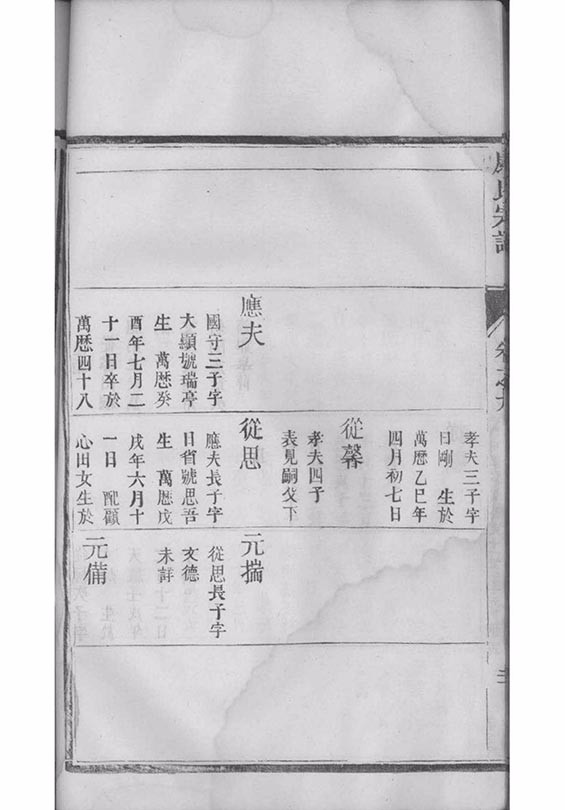 氏宗譜
卷之九
應夫
國守三子字
大顯號瑞亭
生 萬曆癸
酉年七月二
十一日卒於
萬曆四十八
孝夫三子字
日剛 生於
萬曆乙巳年
四月初七日
從馨
孝夫四子
表見嗣父下
從思
應夫長子字
日省號思吾
生 萬曆戊
戌年六月十
一日 配顧
心田女生於
元揣
從思長子字
文德
未詳
元備